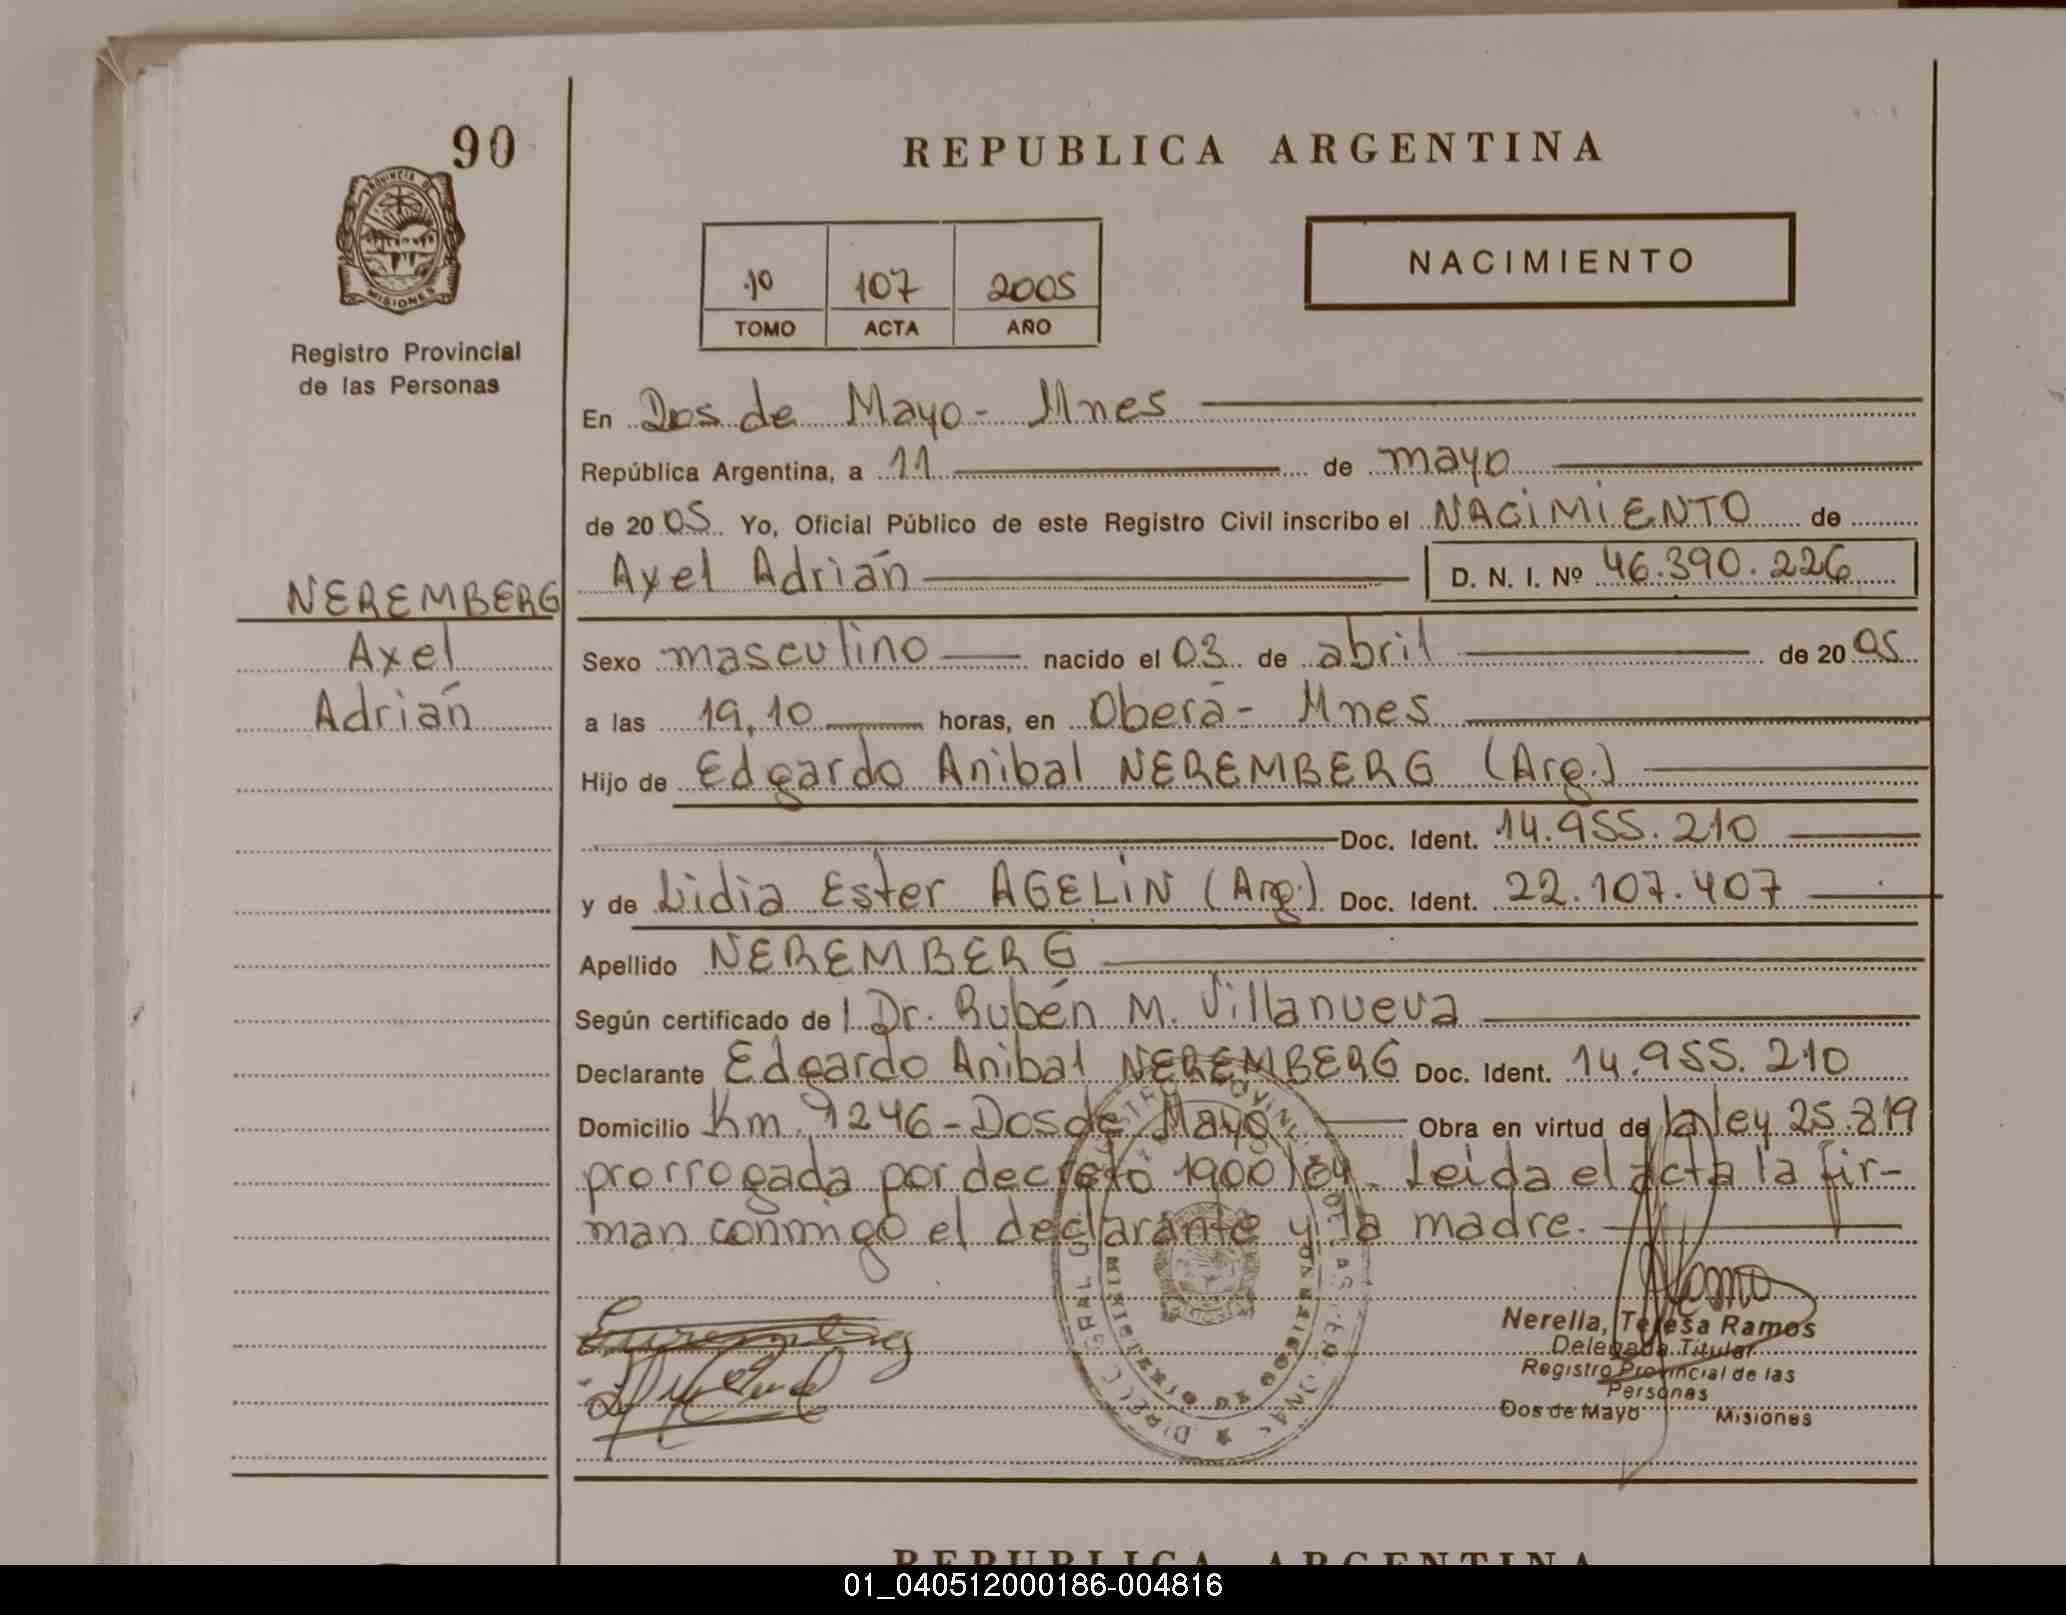 90
REPUBLICA ARGENTINA
PROVINCIA DE
MISIONES
Registro Provincial
de las Personas
NACIMIENTO
10 107 2005
TOMO ACTA AÑO
En Dos de Mayo - Mnes
República Argentina, a 11 de mayo
de 2005 Yo, Oficial Público de este Registro Civil inscribo el NACIMIENTO de
Axel Adrián D. N. I. Nº 46.390.226
NEREMBERG
Axel
Adrián
Sexo masculino nacido el 03 de abril de 2005
a las 19,10 horas, en Oberá - Mnes
Hijo de Edgardo Anibal NEREMBERG (Arg.)
Doc. Ident. 14.955.210
y de Lidia Ester AGELIN (Arg.) Doc. Ident. 22.107.407
Apellido NEREMBERG
Según certificado de l Dr. Rubén M. Villanueva
Declarante Edgardo Anibal NEREMBERG Doc. Ident. 14.955.210
Domicilio Km. 1246 - Dos de Mayo Obra en virtud de la ley 25.819
prorrogada por decreto 1900/04. Leida el acta la fir-
man conmigo el declarante y la madre.
Nerella, Teresa Ramos
Delegada Titular
Registro Provincial de las
Personas
Dos de Mayo Misiones
REPUBLICA ARGENTINA
01_040512000186-004816